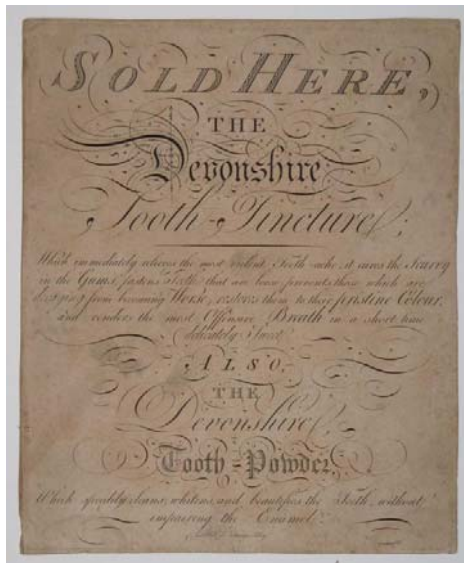 SOLD HERE,
THE
Devonshire
Tooth-Tincture;
Which immediately relieves the most violent Tooth-ache, it cures the Scurvy
in the Gums, fastens Teeth that are loose, prevents those which are
decaying from becoming Worse, restores them to their pristine Colour,
and renders the most Offensive Breath in a short time
delicately Sweet
ALSO,
THE
Devonshire
Tooth-Powder,
Which speedily cleans, whitens, and beautifies the Teeth, without
impairing the Enamel.